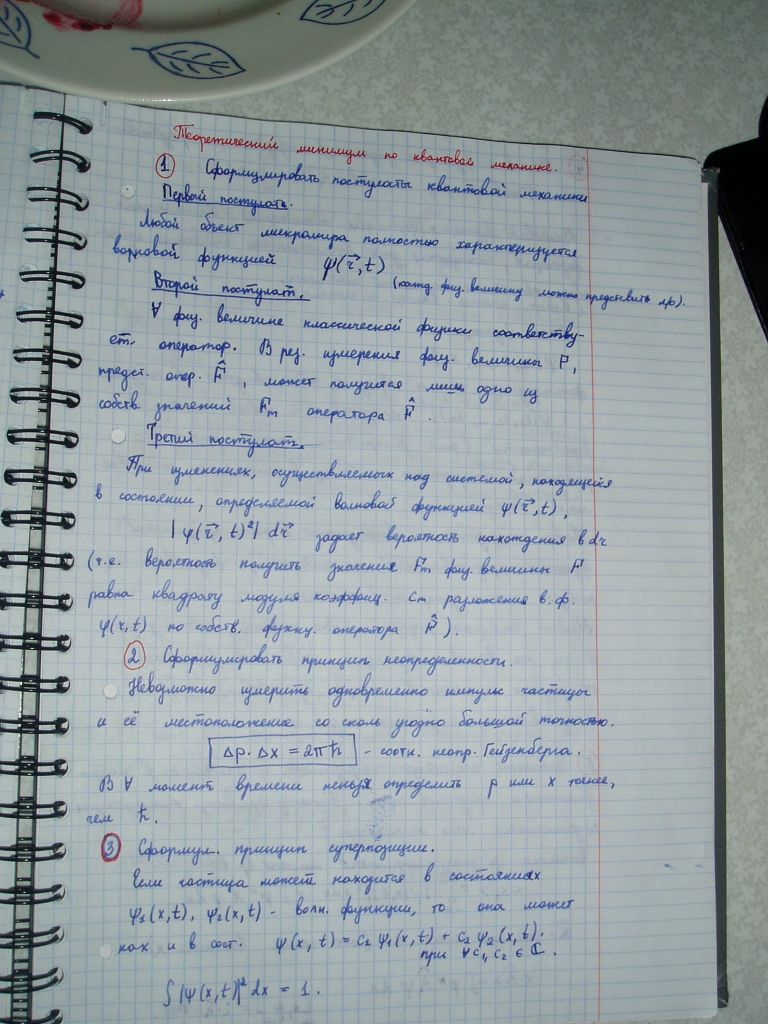 Теоретический минимум по квантовой механике.
① Сформулировать постулаты квантовой механики
Первый постулат.
Любой объект микромира полностью характеризуется
волновой функцией ψ(r⃗,t)
Второй постулат. (кажд. физ. величину можно представить л/р).
∀ физ. величине классической физики соответству-
ет оператор. В рез. измерения физ. величины F,
предст. опер. F̂, может получится лишь одно из
собств. значений Fm оператора F̂.
Третий постулат.
При измененях, осуществляемых над системой, находящейся
в состоянии, определяемой волновой функцией ψ(r⃗,t),
|ψ(r⃗,t)²| dr⃗ задает вероятность нахождения в dr
(т.е. вероятность получить значения Fm физ. величины F
равна квадрату модуля коэффиц. Cm разложения в.ф.
ψ(r,t) по собств. функц. оператора F̂).
② Сформулировать принцип неопределенности.
Невозможно измерить одновременно импульс частицы
и её местоположение со сколь угодно большой точностью.
Δp·Δx = 2πħ - соотн. неопр. Гейзенберга.
В ∀ момент времени нельзя определить p или x точнее,
чем ħ.
③ Сформул. принцип суперпозиции.
Если частица может находится в состояниях
ψ₁(x,t), ψ₂(x,t) - волн. функции, то она может
нах и в сост. ψ(x,t) = c₁ψ₁(x,t) + c₂ψ₂(x,t).
при ∀c₁,c₂ ∈ ℂ.
∫|ψ(x,t)|² dx = 1.